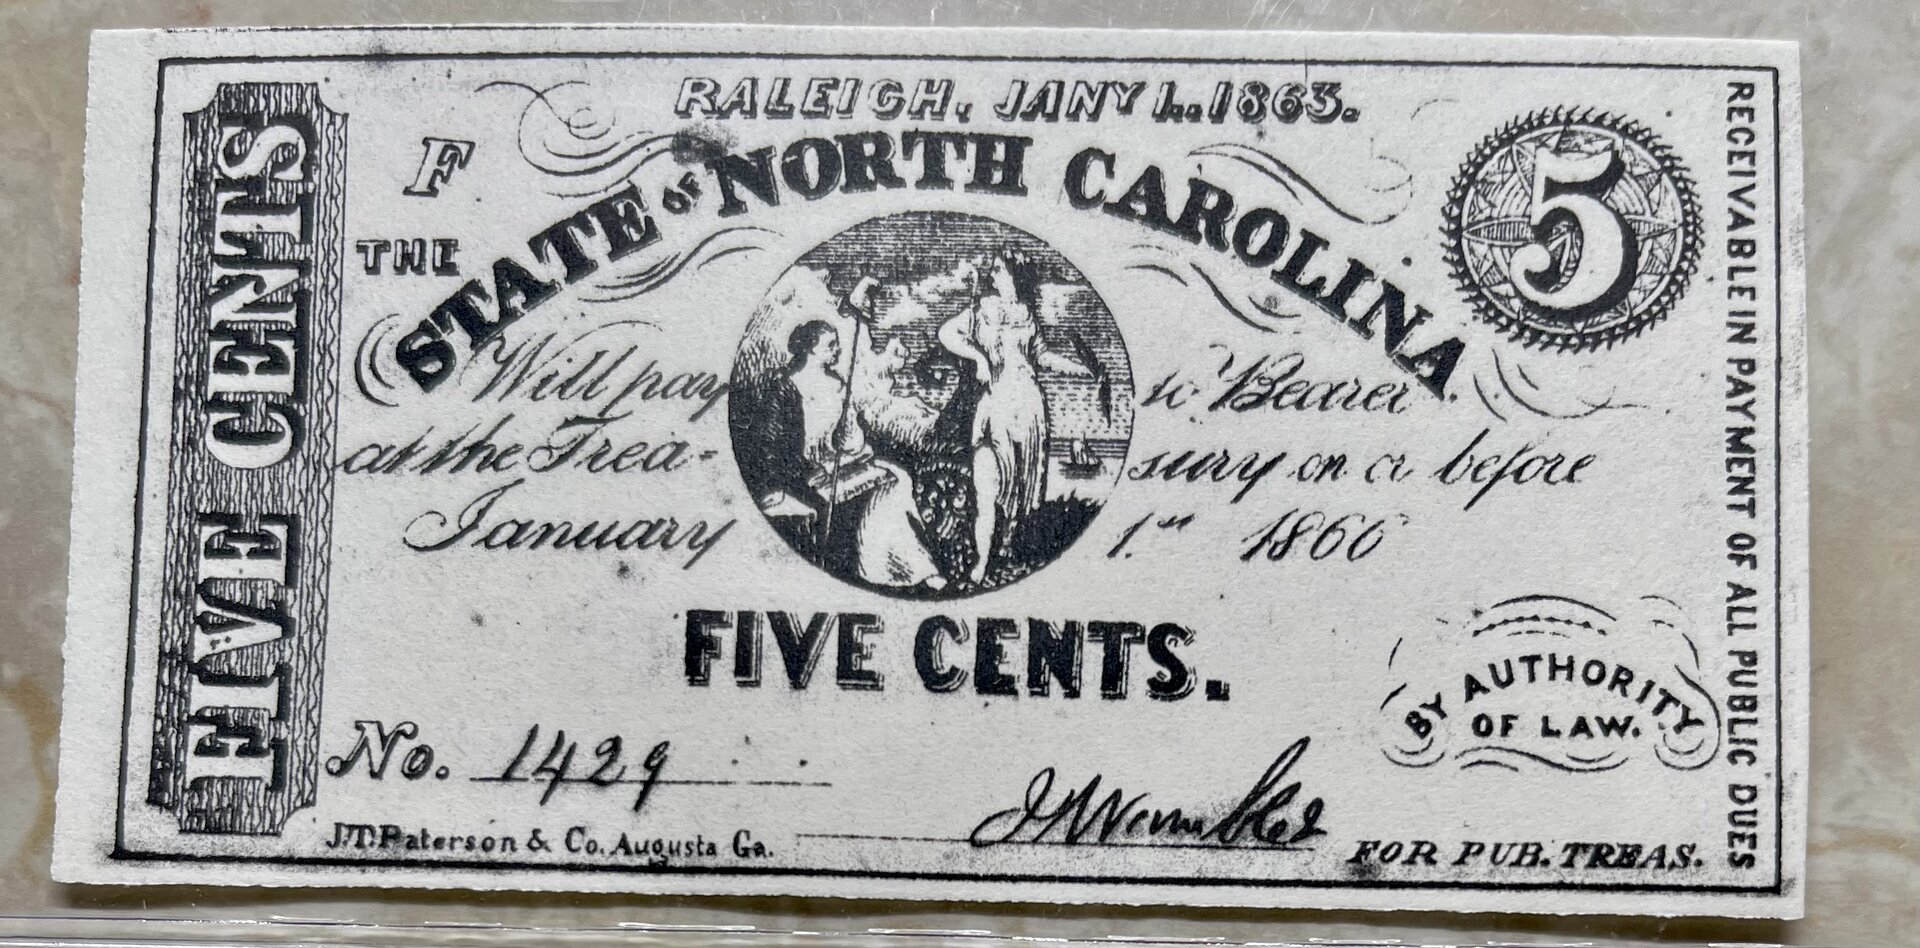 RALEIGH, JANY 1., 1863.
F
THE
STATE OF NORTH CAROLINA
5
Will pay to Bearer
at the Trea- sury on or before
January 1st 1866
FIVE CENTS.
BY AUTHORITY
OF LAW.
No. 1429
J.T. Paterson & Co. Augusta Ga.
FOR PUB. TREAS.
FIVE CENTS
RECEIVABLE IN PAYMENT OF ALL PUBLIC DUES